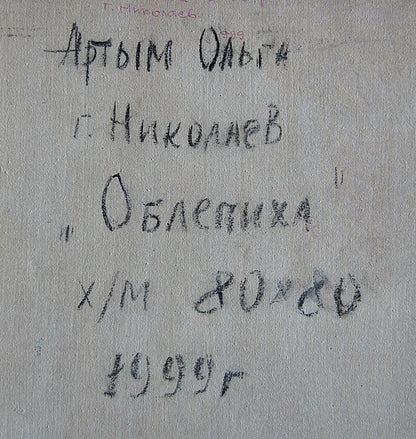 г. Николаев
Артым Ольга
г. Николаев
„Облепиха"
х/м 80х80
1999г